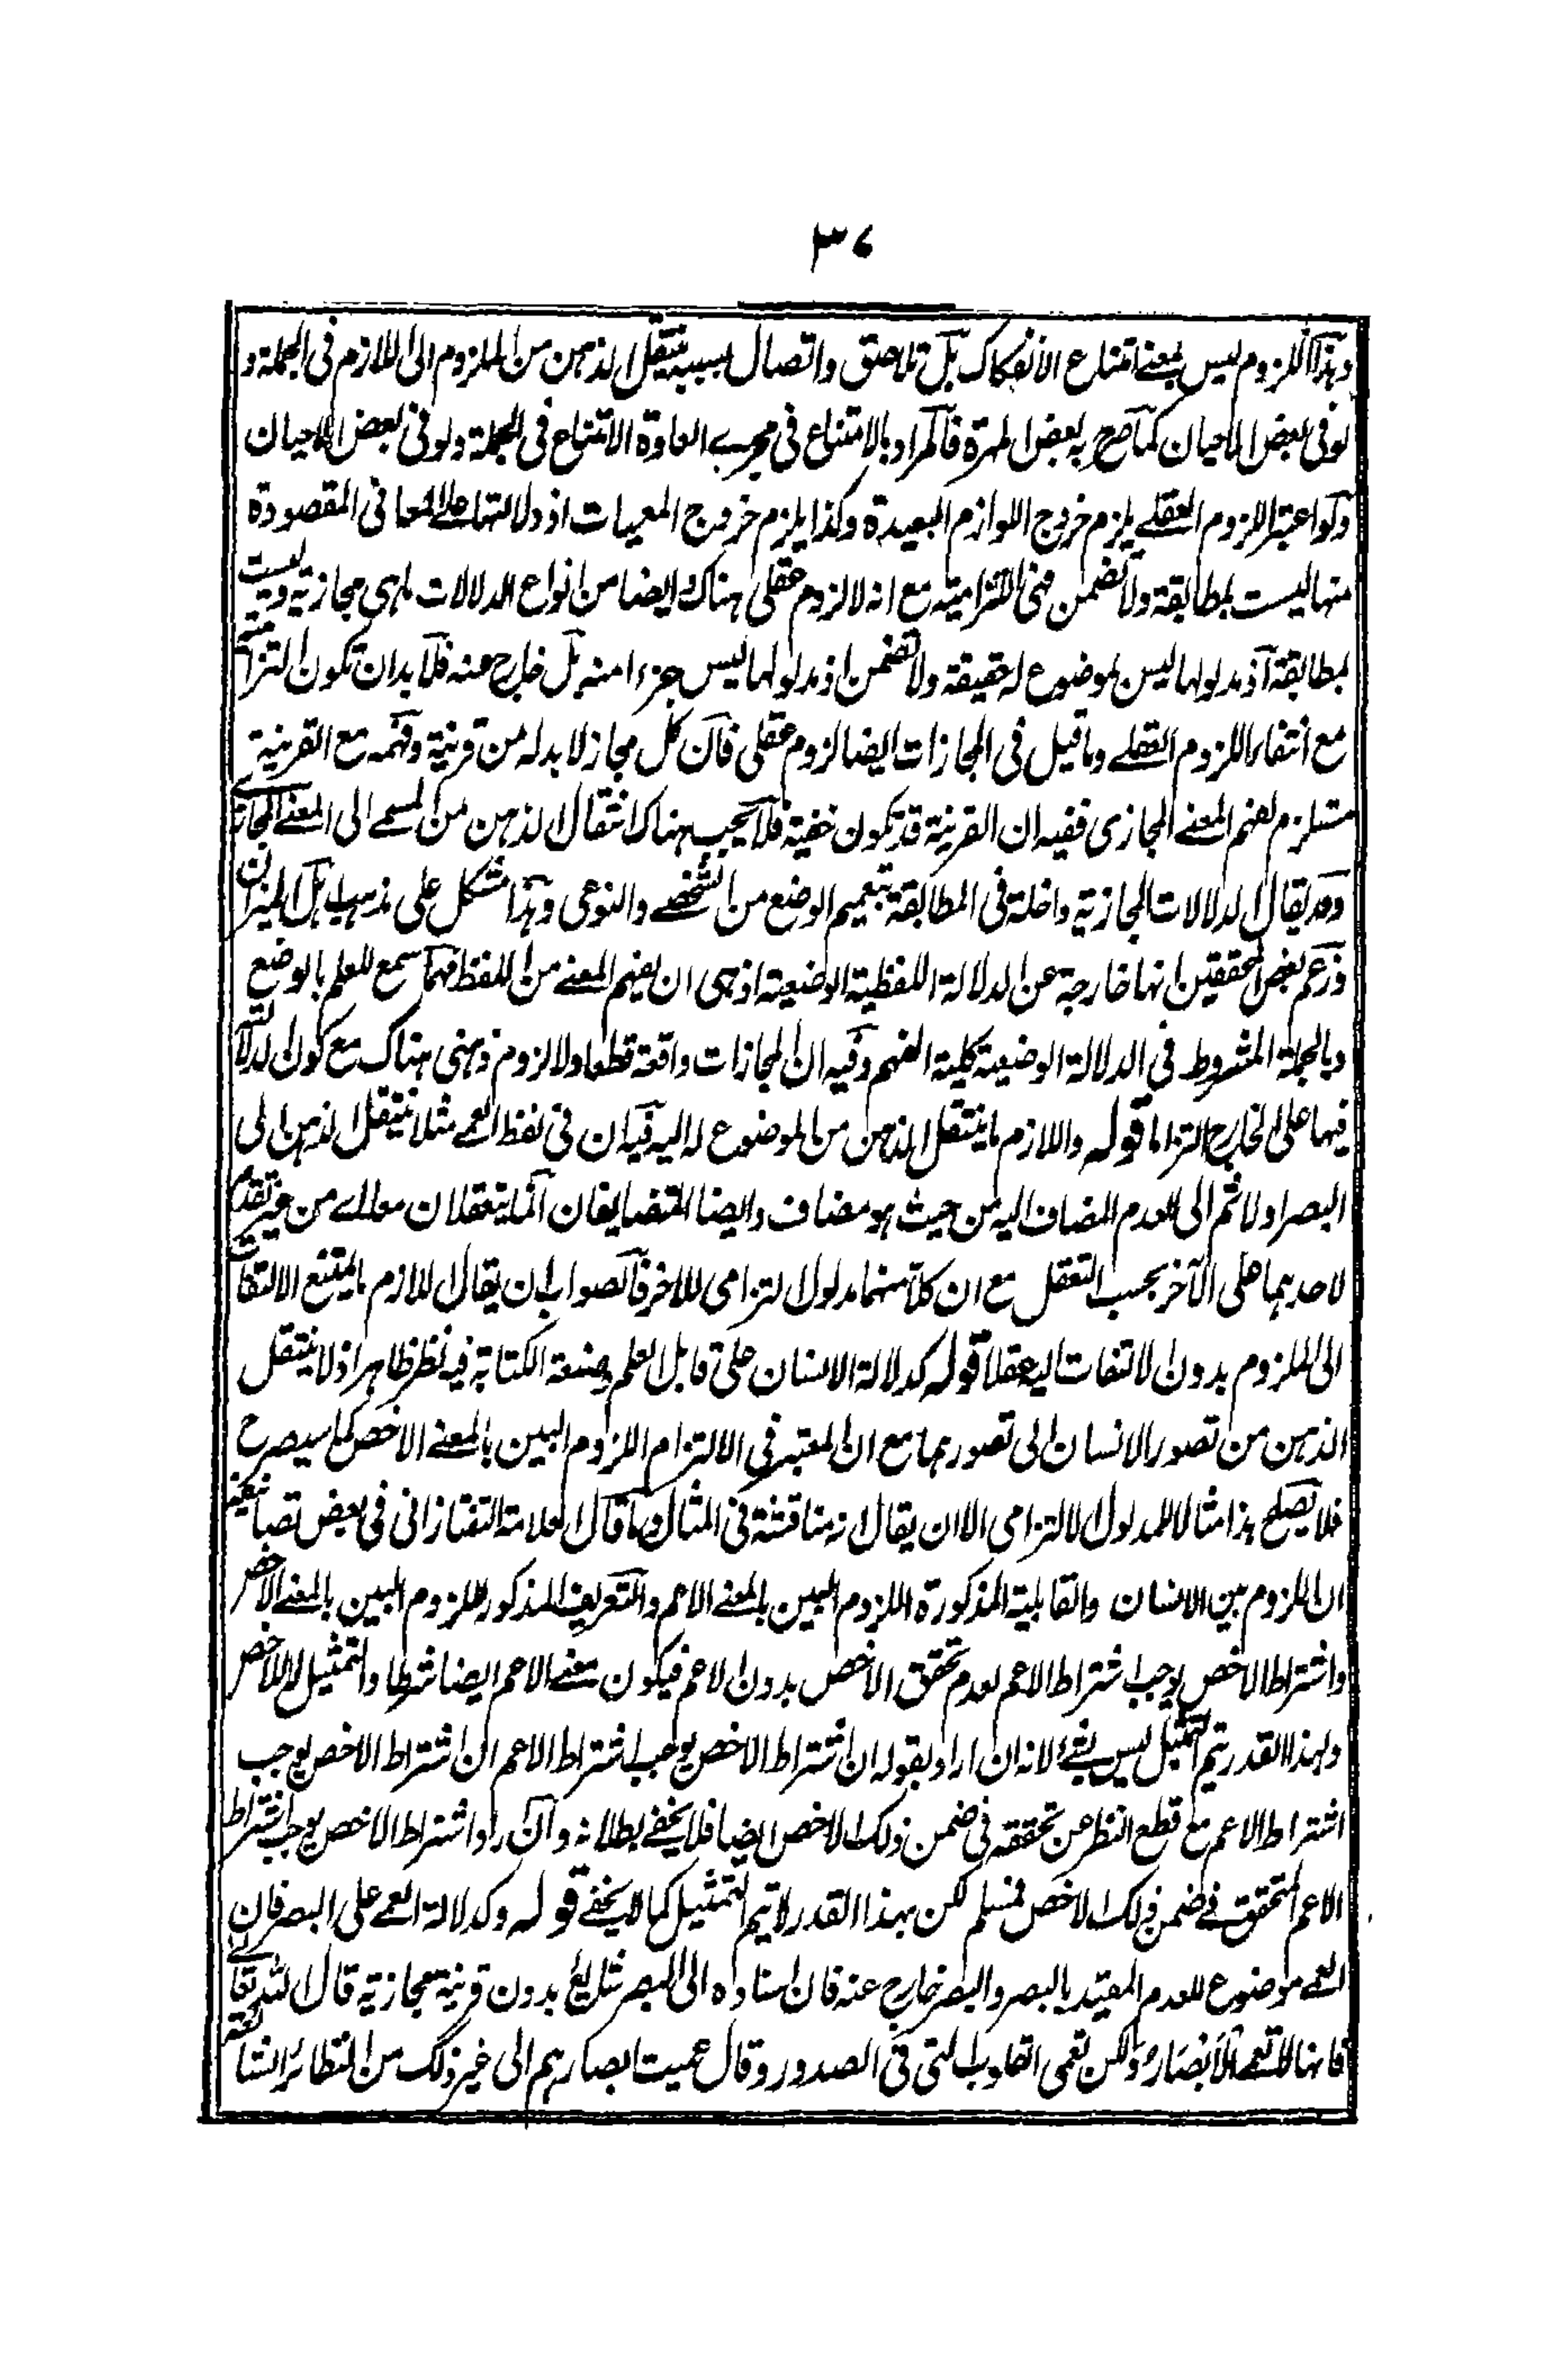 ٣٧
وهذا اللزوم ليس بمعنى امتناع الانفكاك بل تلاصق واتصال بسببه ينتقل الذهن من الملزوم الى اللازم فى الجملة و
لو فى بعض الاحيان كما صرح به بعض المهرة فالمراد بالامتناع فى مجرى العادة الامتناع فى الجملة ولو فى بعض الاحيان
ولو اعتبر اللزوم العقلى يلزم خروج اللوازم البعيدة وكذا يلزم خروج المعميات اذ دلالتها على المعانى المقصودة
منها ليست بمطابقة ولا تضمن فهى التزامية مع انه لا لزوم عقلى هناك وايضا من انواع الدلالات ماهى مجازية وليست
بمطابقة اذ مدلولها ليس بموضوع له حقيقة ولا تضمن اذ مدلولها ليس جزءا منه بل خارج عنه فلا بد ان تكون التزامية
مع انتفاء اللزوم العقلى وما قيل فى المجازات ايضا لزوم عقلى فان كل مجاز لا بد له من قرينة وفهمه مع القرينة
مستلزم لفهم المعنى المجازى ففيه ان القرينة قد تكون خفية فلا يجب هناك انتقال الذهن من المسمى الى المعنى المجازى
وقد يقال الدلالات المجازية داخلة فى المطابقة بتعميم الوضع من الشخصى والنوعى وهذا مشكل على مذهب اهل الميزان
وزعم بعض المحققين انها خارجة عن الدلالة اللفظية الوضعية اذ هى ان يفهم المعنى من اللفظ مهما سمع للعلم بالوضع
وبالجملة المشروط فى الدلالة الوضعية كلية الفهم وفيه ان المجازات واقعة قطعا ولا لزوم ذهنى هناك مع كون الدلالة
فيها على الخارج التزاما قوله واللازم ما ينتقل الذهن من الموضوع له اليه فيه ان فى لفظ العمى مثلا ينتقل الذهن الى
البصر اولا ثم الى العدم المضاف اليه من حيث هو مضاف وايضا المتضايفان انما يتعقلان معا اى من غير تقدم
لاحدهما على الآخر بحسب التعقل مع ان كلا منهما مدلول التزامى للاخر فالصواب ان يقال اللازم ما يمتنع الالتفات
الى الملزوم بدون الالتفات اليه عقلا قوله كدلالة الانسان على قابل العلم وصنعة الكتابة فيه نظر ظاهر اذ لا ينتقل
الذهن من تصور الانسان الى تصورهما مع ان المعتبر فى الالتزام اللزوم البين بالمعنى الاخص كما سيصرح
فلا يصلح هذا مثالا للمدلول الالتزامى الا ان يقال انه مناقشة فى المثال وما قال العلامة التفتازانى فى بعض تصانيفه
ان اللزوم بين الانسان والقابلية المذكورة اللزوم البين بالمعنى الاعم والتعريف المذكور للزوم البين بالمعنى الاخص
واشتراط الاخص يوجب اشتراط الاعم لعدم تحقق الاخص بدون الاعم فيكون معنى الاعم ايضا شرطا والتمثيل له لا للاخص
وبهذا القدر يتم التمثيل ليس بشئ لانه ان اراد بقوله ان اشتراط الاخص يوجب اشتراط الاعم ان اشتراط الاخص يوجب
اشتراط الاعم مع قطع النظر عن تحققه فى ضمن ذلك الاخص ايضا فلا يخفى بطلانه وان اراد اشتراط الاخص يوجب اشتراط
الاعم المتحقق فى ضمن ذلك الاخص فمسلم لكن بهذا القدر لا يتم التمثيل كما لا يخفى قوله وكدلالة العمى على البصر فان
العمى موضوع للعدم المقيد بالبصر والبصر خارج عنه فان اسناده الى البصر شائع بدون قرينة مجازية قال الله تعالى
فانها لا تعمى الابصار ولكن تعمى القلوب التى فى الصدور وقال عميت ابصارهم الى غير ذلك من النظائر الشائعة